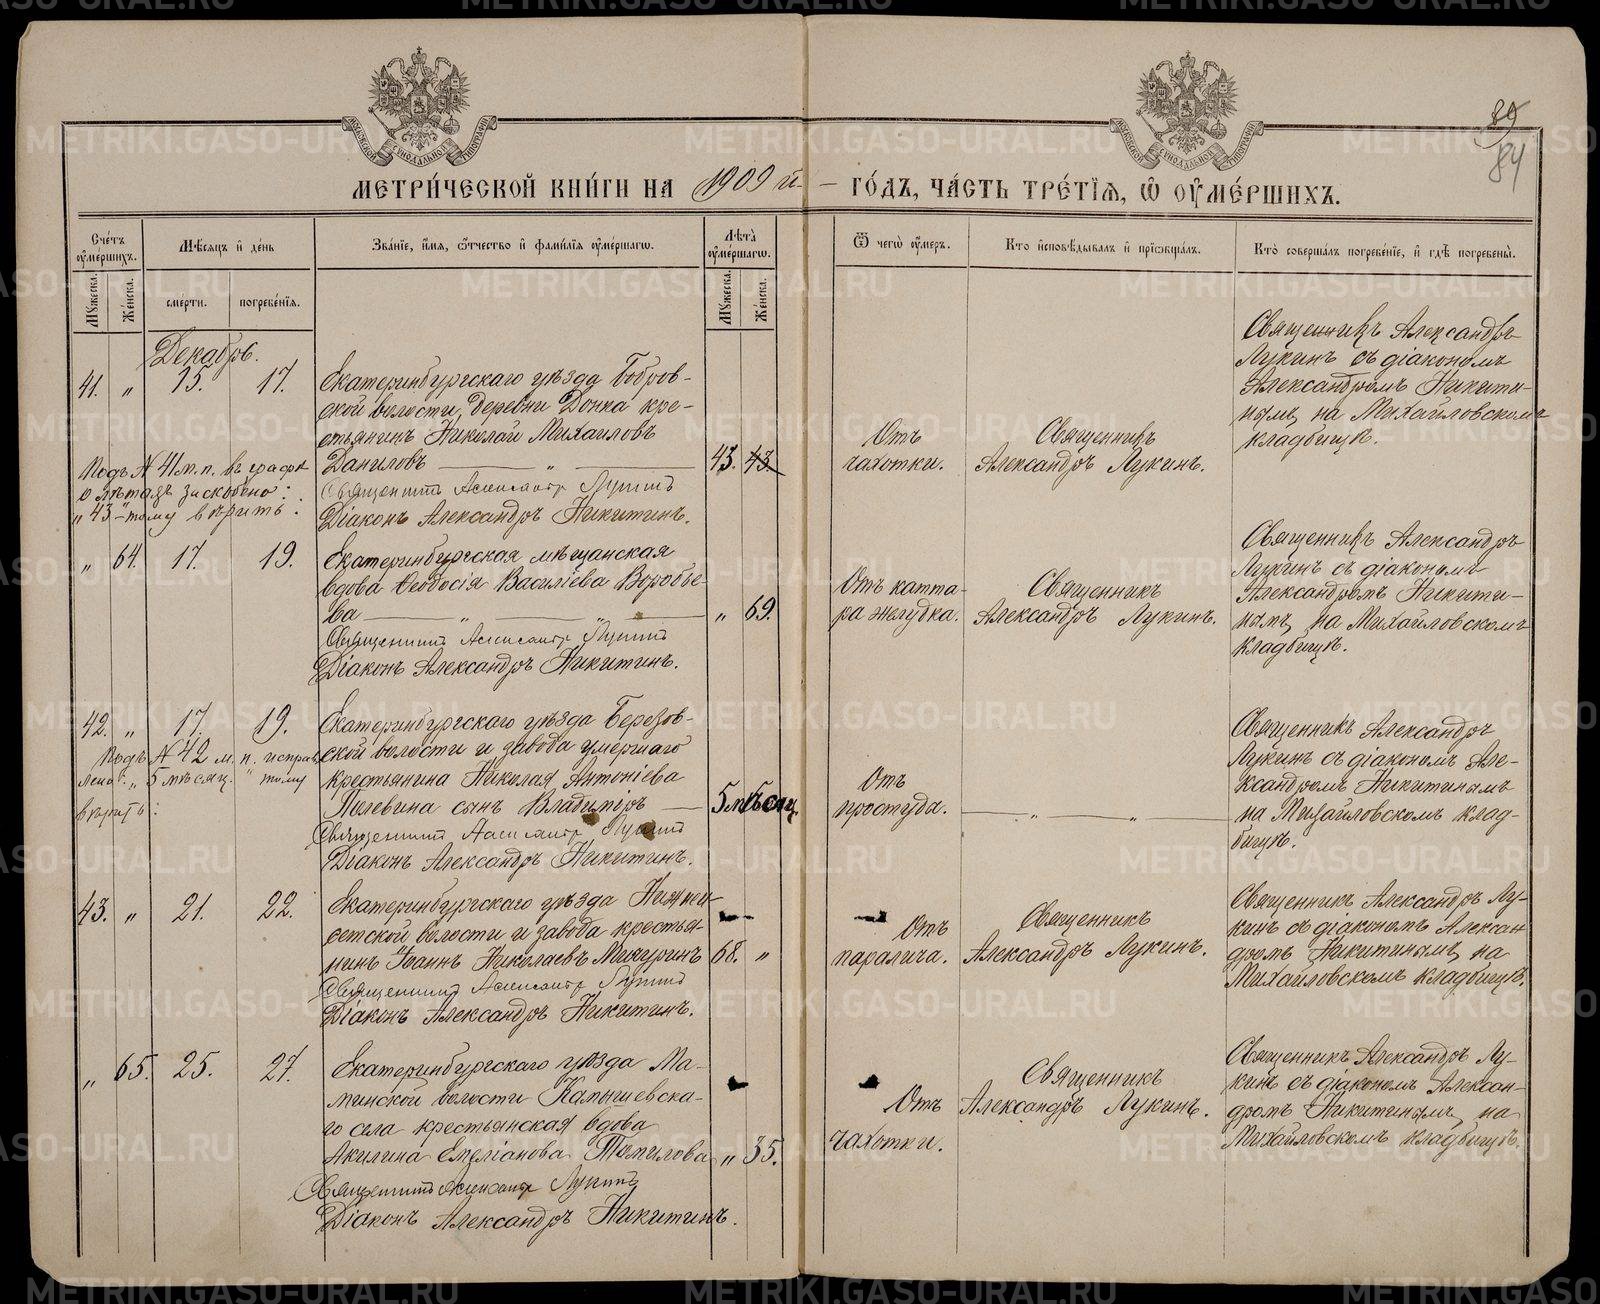 89
84
МЕТРИЧЕСКОЙ КНИГИ НА 1909 й. – ГОДЪ, ЧАСТЬ ТРЕТІЯ, Ѡ ОУМЕРШИХЪ.
Счетъ оумершихъ.
Мужеска.
Женска.
Мѣсяцъ и день
смерти.
погребенія.
Званіе, имя, отчество и фамилія оумершагѡ.
Лѣта оумершагѡ.
Мужеска.
Женска.
Ѿ чегѡ оумеръ.
Кто исповѣдывалъ и пріѡбщалъ.
Кто совершалъ погребеніе, и гдѣ погребены.
Декабрь.
41. „ 15. 17.
Екатеринбургскаго уѣзда Бобров-
ской волости, деревни Донка кре-
стьянинъ Николай Михаиловъ
Даниловъ — „ — 43. 43.
Священникъ Александръ Лукинъ
Діаконъ Александръ Никитинъ.
Подъ № 41 м. п. въ графѣ
о лѣтахъ заскоблено:
„43„ – тому вѣрить.
Отъ
чахотки.
Священникъ
Александръ Лукинъ.
Священникъ Александръ
Лукинъ съ діакономъ
Александромъ Никити-
нымъ, на Михайловскомъ
кладбищѣ.
„ 64. 17. 19.
Екатеринбургская мѣщанская
вдова Ѳеодосія Василіева Воробье-
ва — „ — „ — „ 69.
Священникъ Александръ Лукинъ
Діаконъ Александръ Никитинъ.
Отъ катта-
ра желудка.
Священникъ
Александръ Лукинъ.
Священникъ Александръ
Лукинъ съ діакономъ
Александромъ Никити-
нымъ, на Михайловскомъ
кладбищѣ.
42. „ 17. 19.
Екатеринбургскаго уѣзда Березов-
ской волости и завода умершаго
крестьянина Николая Антоніева
Полевина сынъ Владиміръ — 5 мѣсяц.
Священникъ Александръ Лукинъ
Діаконъ Александръ Никитинъ.
Подъ № 42 м. п. исправ
лено: „5 мѣсяц.„ тому
вѣрить:
Отъ
простуда.
— „ — „ —
Священникъ Александръ
Лукинъ съ діакономъ Але-
ксандромъ Никитинымъ
на Михайловскомъ клад-
бищѣ.
43. „ 21. 22.
Екатеринбургскаго уѣзда Нижнеи-
сетской волости и завода крестья-
нинъ Іоаннъ Николаевъ Мичуринъ 68. „
Священникъ Александръ Лукинъ
Діаконъ Александръ Никитинъ.
Отъ
паралича.
Священникъ
Александръ Лукинъ.
Священникъ Александръ Лу-
кинъ съ діакономъ Алексан
дромъ Никитинымъ, на
Михайловскомъ кладбищѣ.
„ 65. 25. 27.
Екатеринбургскаго уѣзда Ма-
минской волости Капышевска-
го села крестьянская вдова
Акилина Емеліанова Томилова „ 35.
Священникъ Александръ Лукинъ
Діаконъ Александръ Никитинъ.
Отъ
чахотки.
Священникъ
Александръ Лукинъ.
Священникъ Александръ Лу-
кинъ съ діакономъ Алексан-
дромъ Никитинымъ, на
Михайловскомъ кладбищѣ.
METRIKI.GASO-URAL.RU